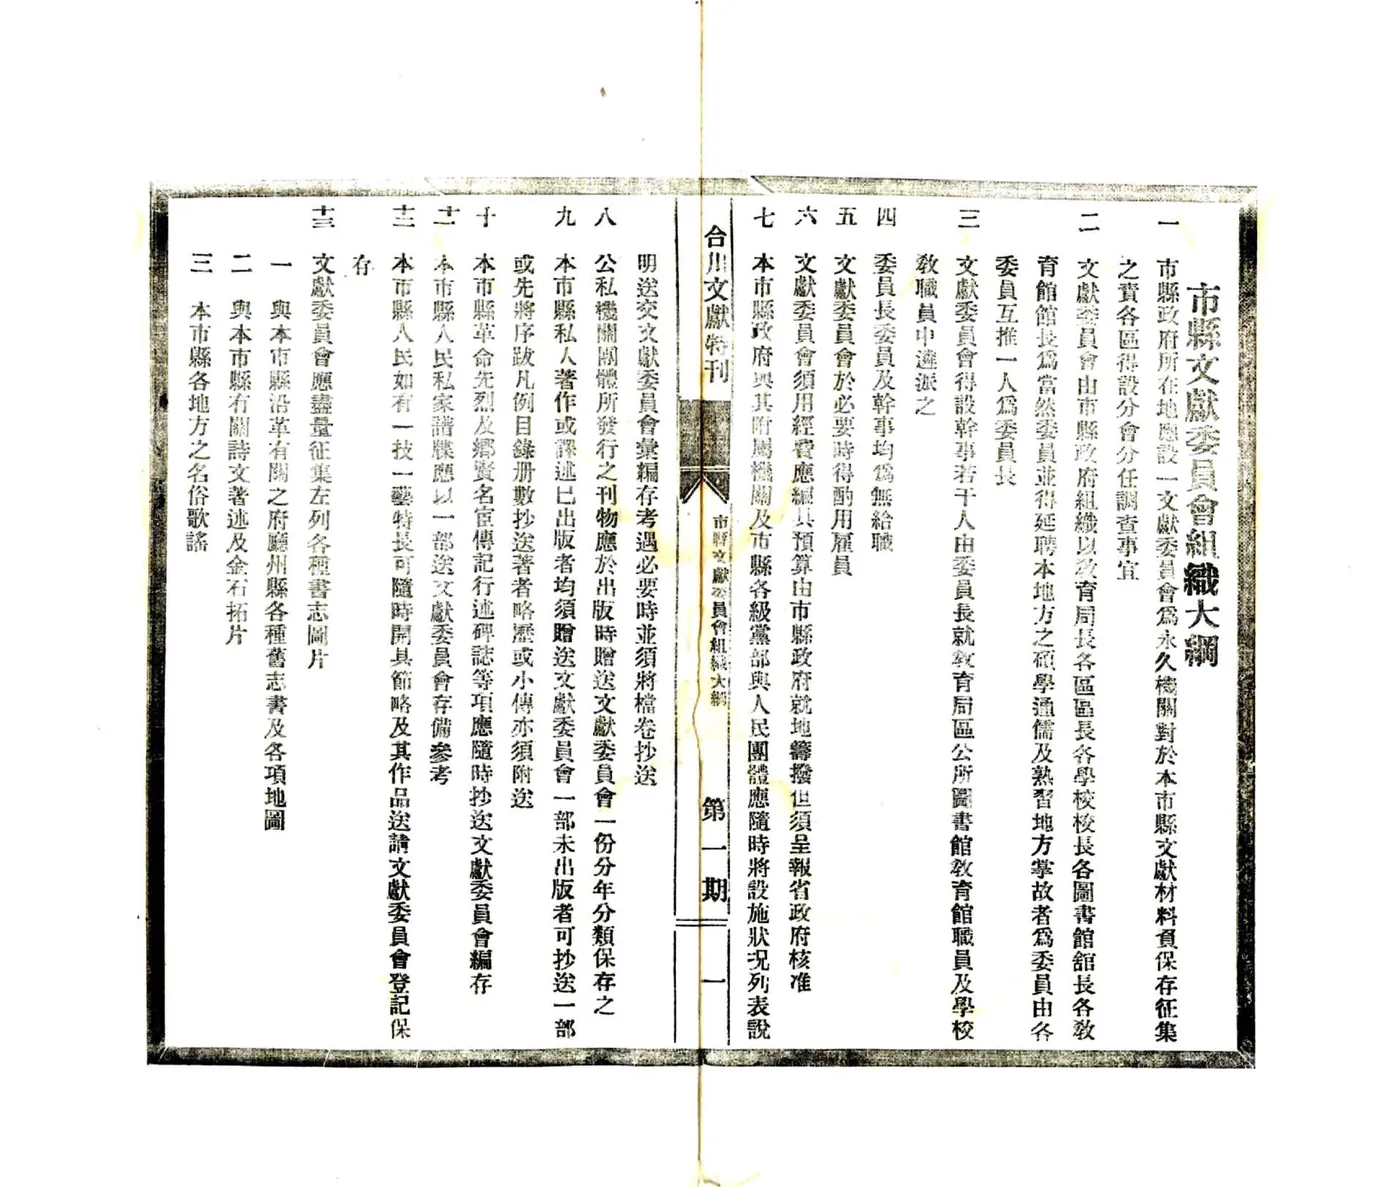 市縣文獻委員會組織大綱
一 市縣政府所在地應設一文獻委員會爲永久機關對於本市縣文獻材料負保存征集
之責各區得設分會分任調查事宜
二 文獻委員會由市縣政府組織以敎育局長各區區長各學校校長各圖書館舘長各敎
育館館長爲當然委員並得延聘本地方之碩學通儒及熟習地方掌故者爲委員由各
委員互推一人爲委員長
三 文獻委員會得設幹事若干人由委員長就敎育局區公所圖書館敎育館職員及學校
敎職員中遴派之
四 委員長委員及幹事均爲無給職
五 文獻委員會於必要時得酌用雇員
六 文獻委員會須用經費應編具預算由市縣政府就地籌撥但須呈報省政府核准
七 本市縣政府與其附屬機關及市縣各級黨部與人民團體應隨時將設施狀况列表說
合川文獻特刊
市縣文獻委員會組織大綱
第一期
一
明送交文獻委員會彙編存考遇必要時並須將檔卷抄送
八 公私機關團體所發行之刊物應於出版時贈送文獻委員會一份分年分類保存之
九 本市縣私人著作或譯述已出版者均須贈送文獻委員會一部未出版者可抄送一部
或先將序跋凡例目錄册數抄送著者略歷或小傳亦須附送
十 本市縣革命先烈及鄉賢名宦傳記行述碑誌等項應隨時抄送文獻委員會編存
十一 本市縣人民私家譜牒應以一部送文獻委員會存備參考
十二 本市縣人民如有一技一藝特長可隨時開具節略及其作品送請文獻委員會登記保
存
十三 文獻委員會應盡量征集左列各種書志圖片
一 與本市縣沿革有關之府廳州縣各種舊志書及各項地圖
二 與本市縣有關詩文著述及金石拓片
三 本市縣各地方之名俗歌謠